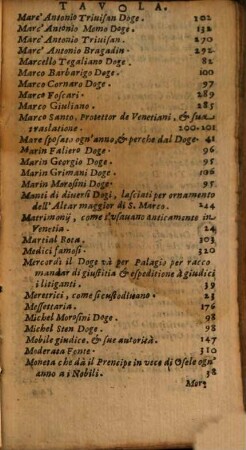 TAVOLA.
Marc' Antonio Triuisan Doge. 102
Marc' Antonio Memo Doge. 132
Marc' Antonio Triuisan. 270
Marc' Antonio Bragadin. 292
Marcello Tegaliano Doge. 82
Marco Barbarigo Doge. 100
Marco Cornaro Doge. 97
Marco Foscari. 289
Marco Giuliano. 285
Marco Santo, Protettor de Venetiani, & sua
traslatione. 200.201
Mare sposato ogn'anno, & perche dal Doge. 41
Marin Faliero Doge. 96
Marin Georgio Doge. 95
Marin Grimani Doge. 106
Marin Morosini Doge. 95
Manti di diuersi Dogi, lasciati per ornamento
dell'Altar maggior di S. Marco. 244
Matrimonij, come s'vsauano anticamente in
Venetia. 24
Martial Rota. 303
Medici famosi. 320
Mercordì il Doge và per Palagio per racco
mandar di giustitia & espeditione à giudici
i litiganti. 39
Meretrici, come si custodiuano. 23
Messettaria. 176
Michel Morosini Doge. 98
Michel Sten Doge. 98
Mobile giudice, & sue autorità. 147
Moderata Fonte. 310
Moneta che dà il Prencipe in vece di Osele ogn'
anno a i Nobili. 58